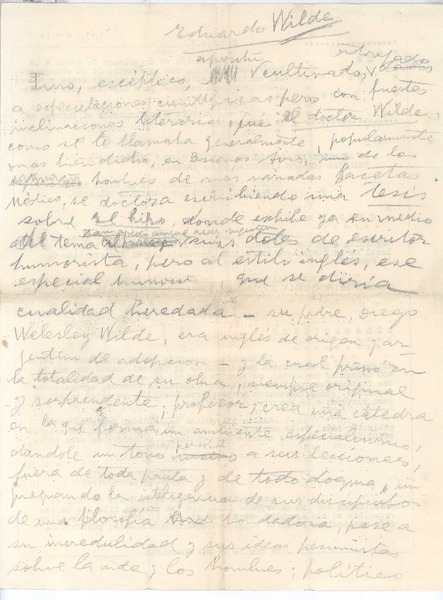 Eduardo Wilde
Fino, escéptico, cultivado,
a especulaciones científicas pero con fuertes
inclinaciones literarias, fue el doctor Wilde,
como se le llamaba generalmente, popularmente
mas bien dicho, en Buenos Aires, uno de los
hombres de mas variadas facetas.
Médico, se doctora escribiendo una tesis
sobre el hipo, donde exhibe ya en medio
del tema sus dotes de escritor
humorista, pero al estilo inglés, ese
especial humour que se diría
cualidad heredada – su padre, Diego
Welesley Wilde, era inglés de origen y ar-
gentino de adopcion – y la cual primó en
la totalidad de su obra, siempre original
y sorprendente; profesor, crea una cátedra
en la que forma un ambiente especialisimo,
dandole un tono a sus lecciones,
fuera de toda pauta y de todo dogma, im-
pregnando la inteligencia de sus discipulos
de una filosofia dadora, pese a
su incredulidad y sus ideas pesimistas
sobre la vida y los hombres; politico